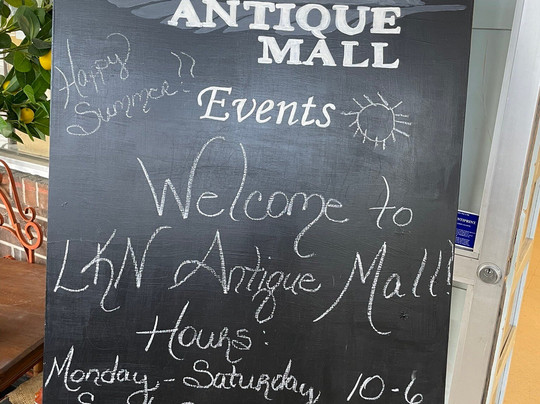 ANTIQUE
MALL
Happy
Summer!!
Events
Welcome to
LKN Antique Mall!
Hours:
Monday - Saturday 10-6